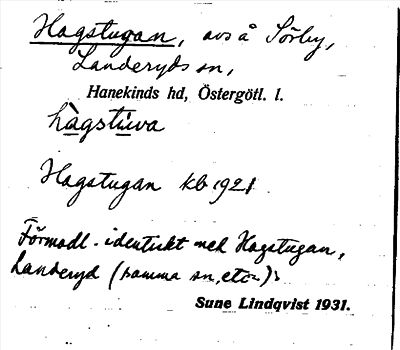 Hagstugan, avs å Sörby,
Landeryds sn,
Hanekinds hd, Östergötl. l.
hàgstúwa
Hagstugan kb 1921
Förmodl. identiskt med Hagstugan,
Landeryd (samma sn, etc.)
Sune Lindqvist 1931.